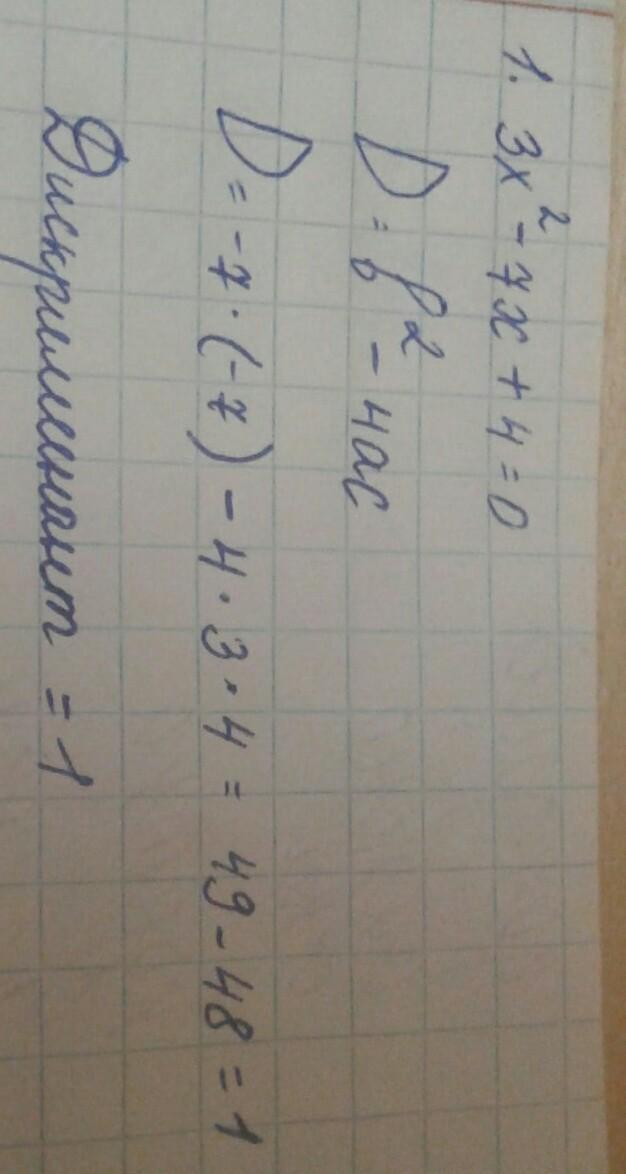 1. 3x² - 7x + 4 = 0
D = b² - 4ac
D = -7 · (-7) - 4 · 3 · 4 = 49 - 48 = 1
Дискриминант = 1